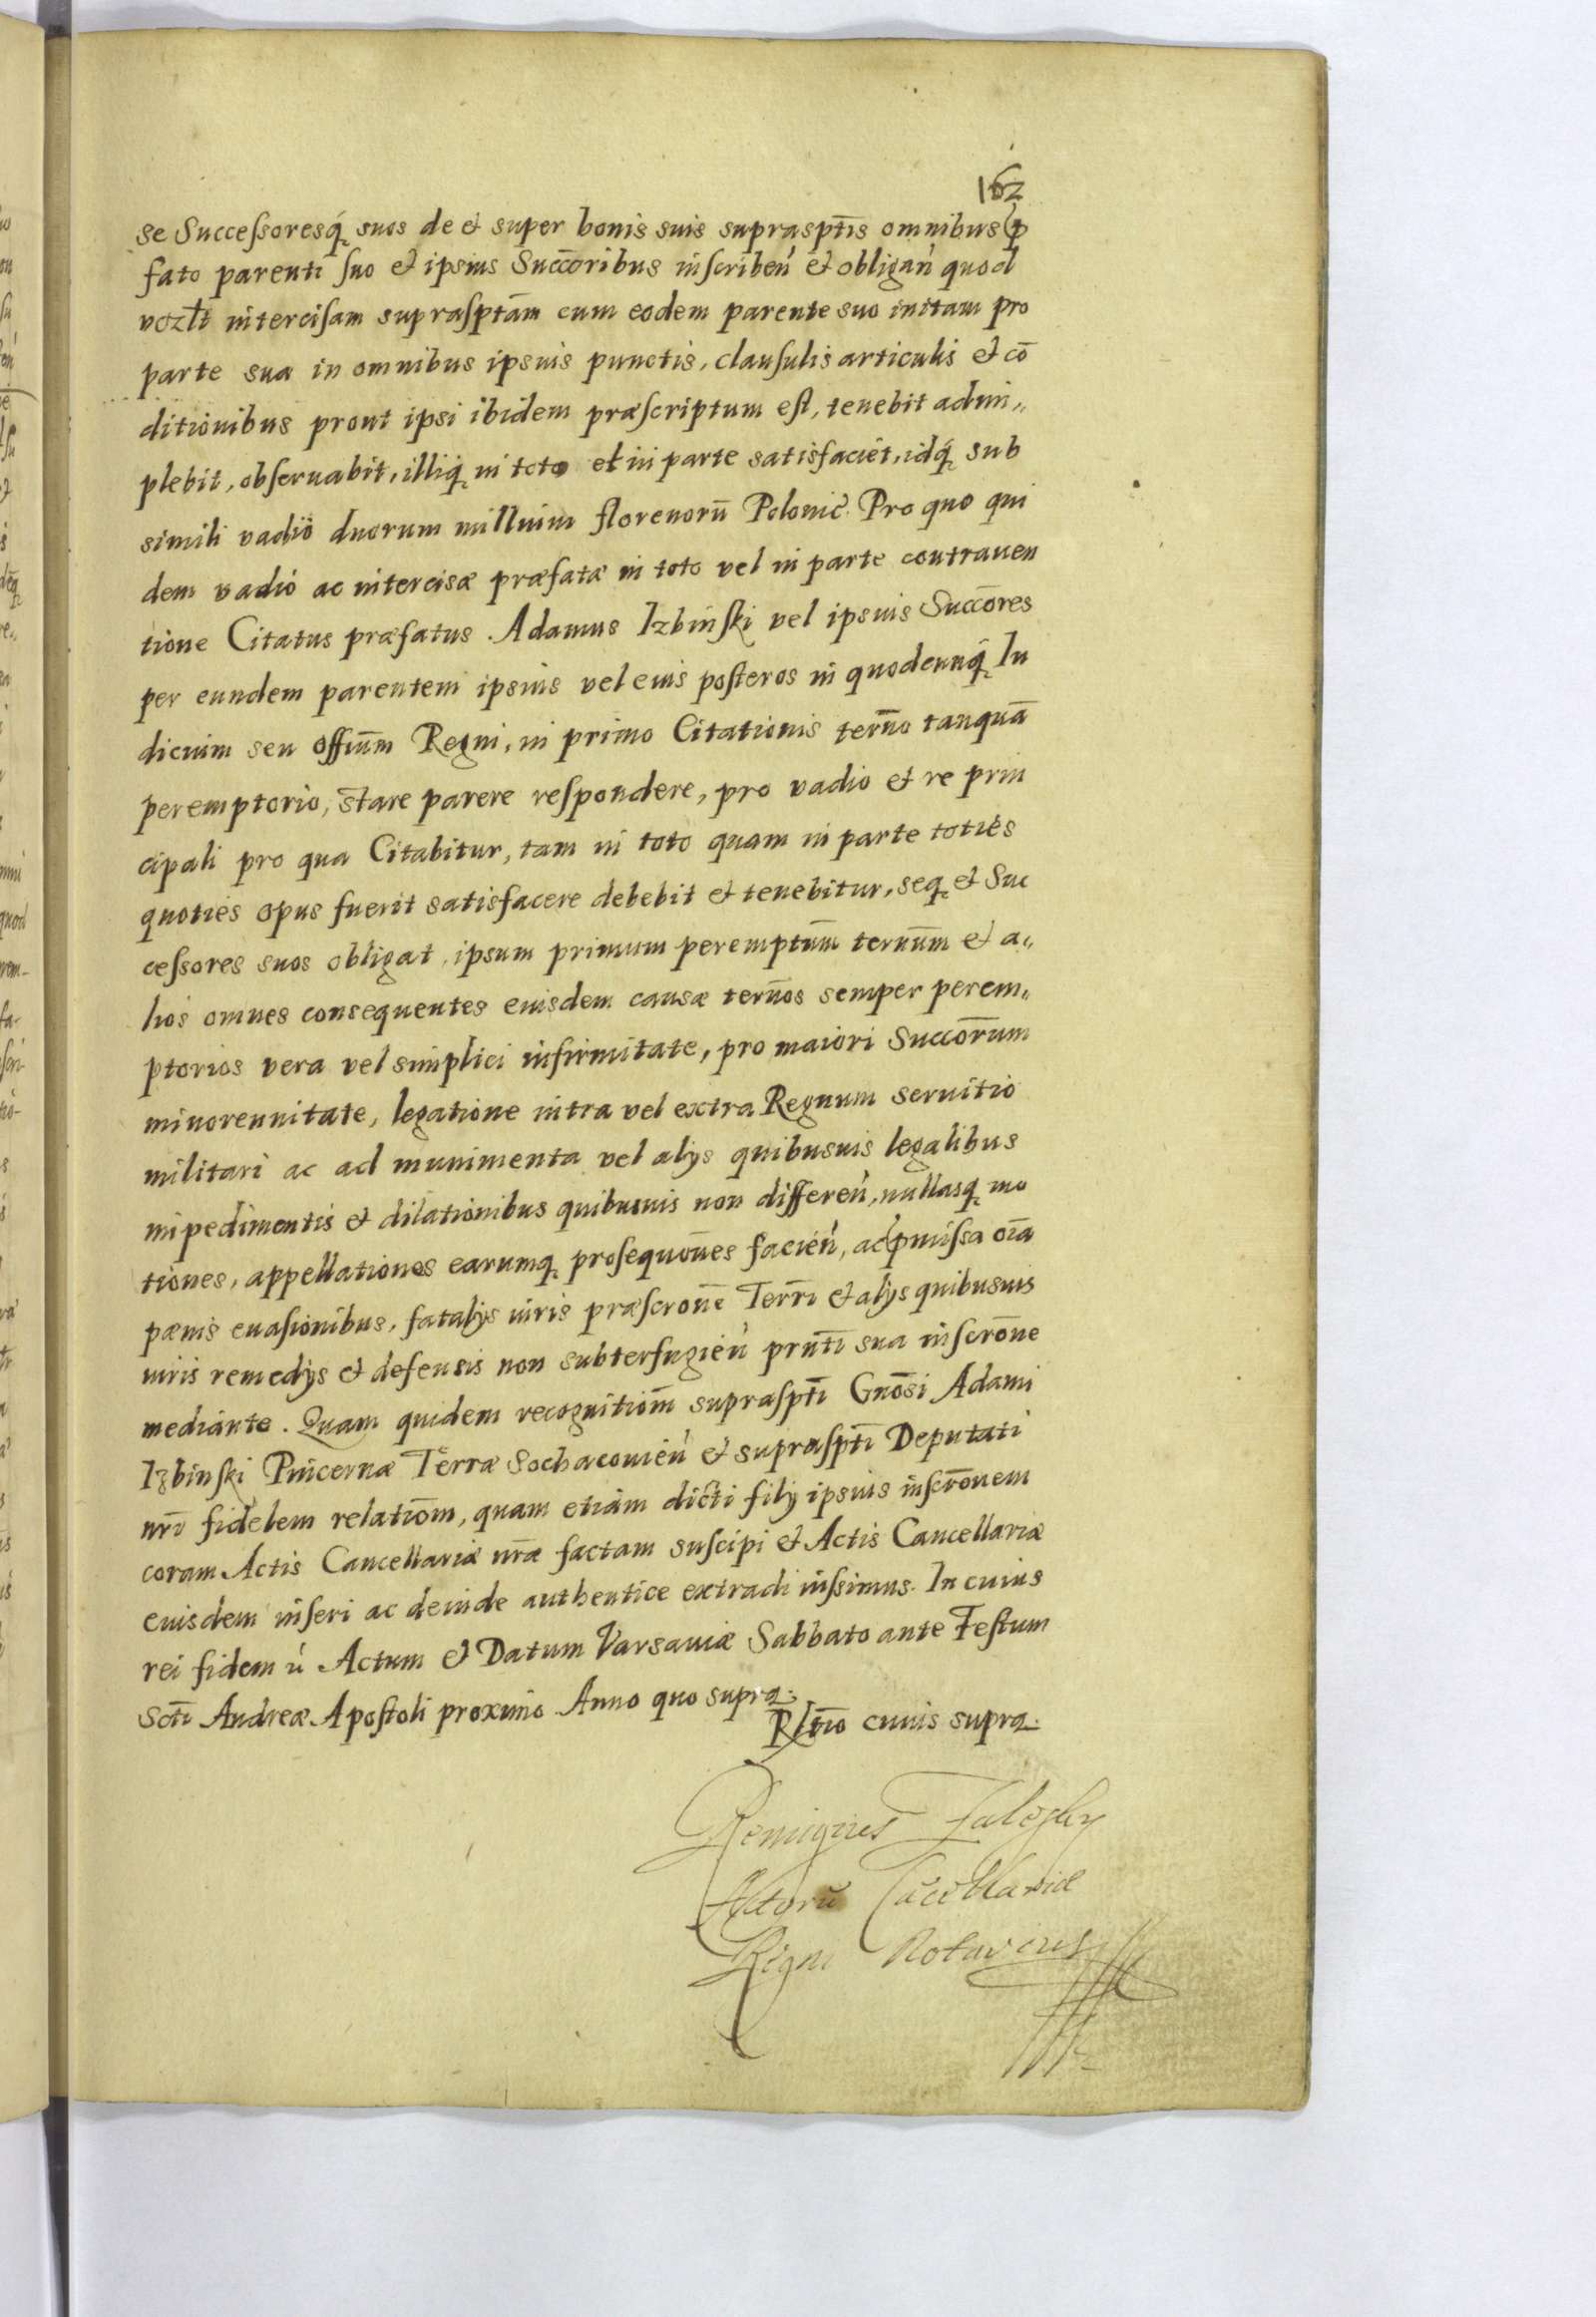 162
se Successoresq́ suos de et super bonis suis suprasptīs omnibus p̄
fato parenti suo et ipsius Succōribus inscribeń et obligań quod
intercisam suprasptām cum eodem parente suo initam pro
parte sua in omnibus ipsius punctis, clausulis articulis et cō
ditionibus prout ipsi ibidem præscriptum est, tenebit adim„
plebit, observabit, illiq́ in toto et in parte satisfaciet, idq́ sub
simili vadio duorum millium florenorū Polonic̄. Pro quo qui
dem vadio ac intercisæ præfatæ in toto vel in parte contraven
tione Citatus præfatus Adamus Izbinski vel ipsius Succōres
per eundem parentem ipsius vel eius posteros in quodcunq́ Iu
dicium seu offiūm Regni, in primo Citationis terno̅ tanquā
peremptorio, stare parere respondere, pro vadio et re prin
cipali pro qua Citabitur, tam in toto quam in parte toties
quoties opus fuerit satisfacere debebit et tenebitur, seq et Suc
cessores suos obligat, ipsum primum peremptūm ternūm et a„
lios omnes consequentes eiusdem causæ ternōs semper perem„
ptorios vera vel simplici infirmitate, pro maiori Succōrum
minorennitate, legatione intra vel extra Regnum servitio
militari ac ad munimenta vel alijs quibusvis legalibus
impedimentis et dilationibus quibusvis non differeń, nullasq mo
tiones, appellationes earumq prosequōnes facień, ac p̄missa oīa
pænis evasionibus, fatalijs iuris præscrōne Terrī et alijs quibusvis
iuris remedijs et defensis non subterfugień prntī sua inscrōne
mediante. Quam quidem recognitiōm suprasptī Gnōsi Adami
Izbinski Pincernæ Terræ Sochacovień et suprasptī Deputati
nrī fidelem relatiōm, quam etiam dicti filij ipsius inscrōnem
coram Actis Cancellariæ nr̄æ factam suscipi et Actis Cancellariæ
eiusdem inseri ac deinde authentice extradi iussimus. In cuius
rei fidem ń Actum et Datum Varsaviæ Sabbato ante Festum
Sctī Andreæ Apostoli proximo Anno quo supra.
R/tīo cuius supra.
Remigius Zaleski
Actorū Cācellariæ
Regni Notarius